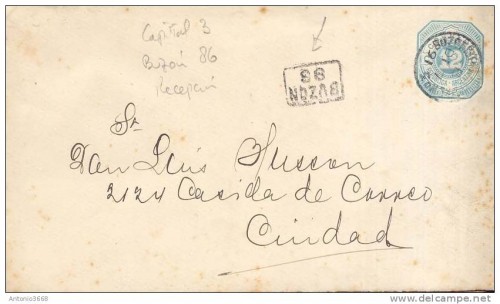 Capital 3
Buzón 86
Recepción
BUZÓN
86
Sr
Don Luis Husson
2124 Casida de Correo
Ciudad
Antonio3668
delcampe.net